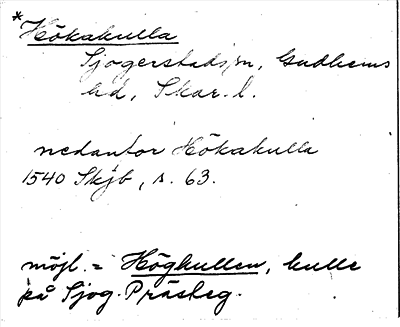 *Hökakulla
Sjogerstads sn, Gudhems
hd, Skar. l.
nedantor Hökakulla
1540 Skjb, s. 63.
möjl. = Högkullen, kulle
på Sjog. Prästeg.